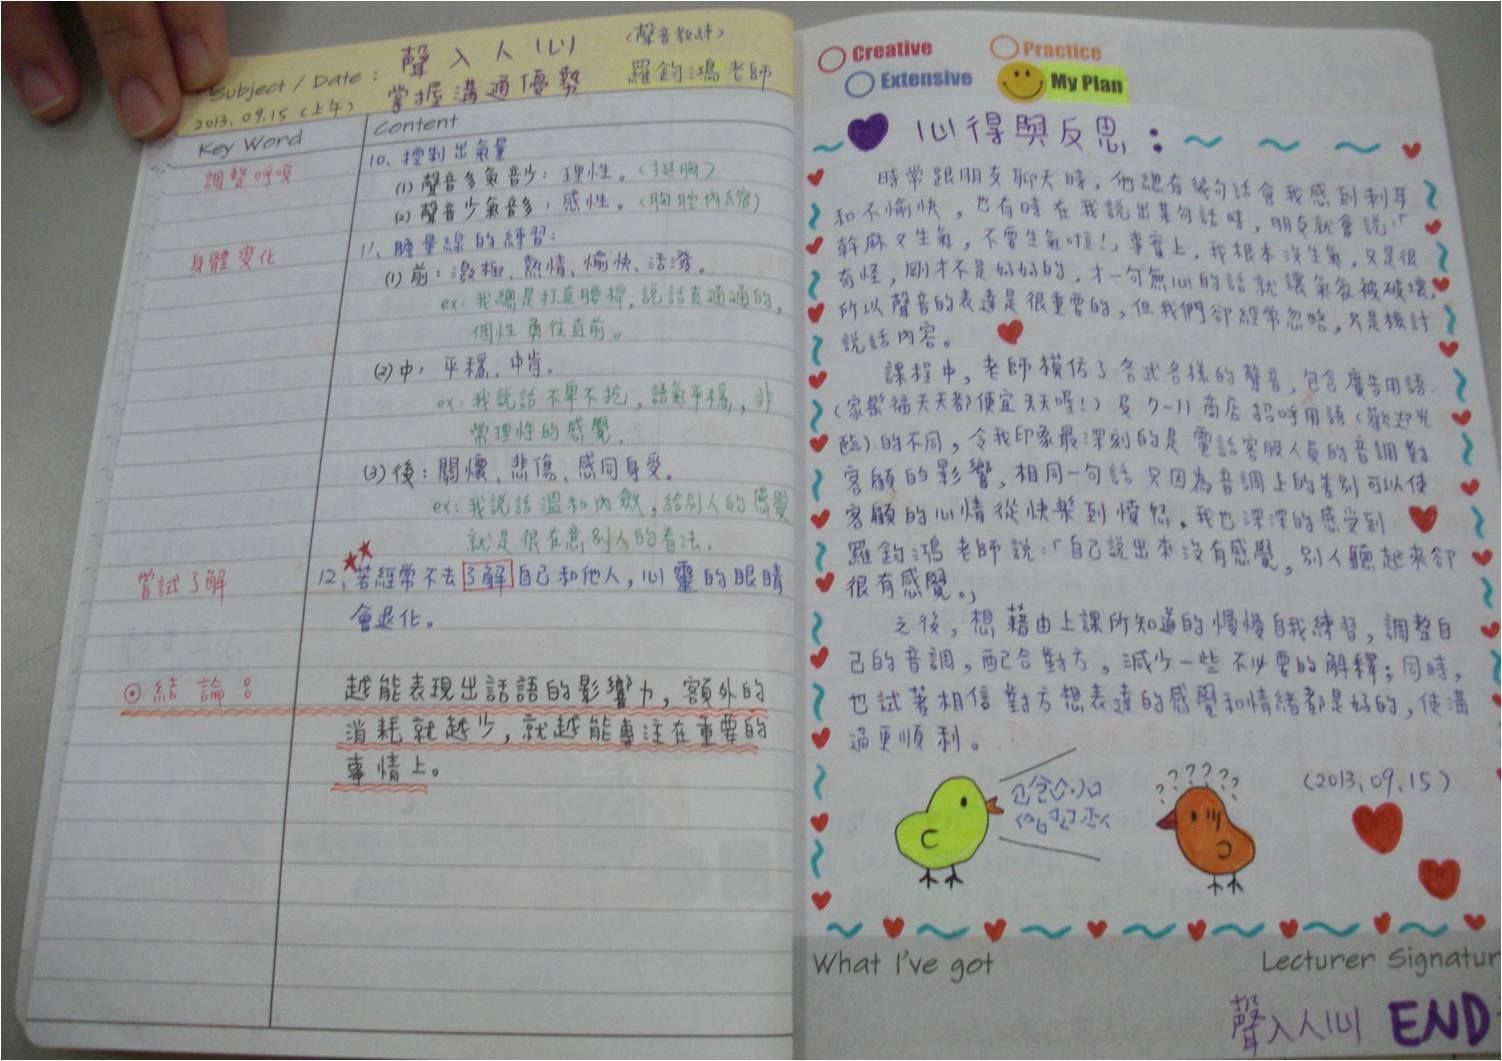 Subject / Date :
聲入人心
掌握溝通優勢
(聲音教練)
羅鈞鴻老師
2013.09.15 (上午)
Key Word
Content
調整呼吸
10、控制出氣量
(1) 聲音多氣音少：理性。(挺胸)
(2) 聲音少氣音多：感性。(胸腔內縮)
身體變化
11、腫量線的練習：
(1) 前：激極、熱情、愉快、活潑。
ex：我總是打直腰桿，說話直通通的，
個性勇往直前。
(2) 中：平穩、中肯。
ex：我說話不卑不抗，語氣平穩，非
常理性的感覺。
(3) 後：關懷、悲傷、感同身受。
ex：我說話溫和內斂，給別人的感覺
就是很在意別人的看法。
嘗試了解
12、若經常不去了解自己和他人，心靈的眼睛
會退化。
⊙結論：
越能表現出話語的影響力，額外的
消耗就越少，就越能專注在重要的
事情上。
Creative
Practice
Extensive
My Plan
心得與反思：
時常跟朋友聊天時，他總有幾句話會我感到刺耳
和不愉快，也有時在我說出某句話時，朋友就會說：「
幹麻又生氣，不要生氣啦！」事實上，我根本沒生氣，只是很
奇怪，剛才不是好好的，才一句無心的話就讓氣氛被破壞，
所以聲音的表達是很重要的，但我們卻經常忽略，只是檢討
說話內容。
課程中，老師模仿了各式各樣的聲音，包含廣告用語
(家樂福天天都便宜天天喔！)及7-11商店招呼用語(歡迎光
臨)的不同，令我印象最深刻的是電話客服人員的音調對
客顧的影響，相同一句話只因為音調上的差別可以使
客顧的心情從快樂到憤怒，我也深深的感受到
羅鈞鴻老師說：「自己說出來沒有感覺，別人聽起來卻
很有感覺。」
之後，想藉由上課所知道的慢慢自我練習，調整自
己的音調，配合對方，減少一些不必要的解釋；同時，
也試著相信對方想表達的感覺和情緒都是好的，使溝
通更順利。
(2013.09.15)
? ? ? ? ? ? ?
What I've got
Lecturer Signatur
聲入人心 END